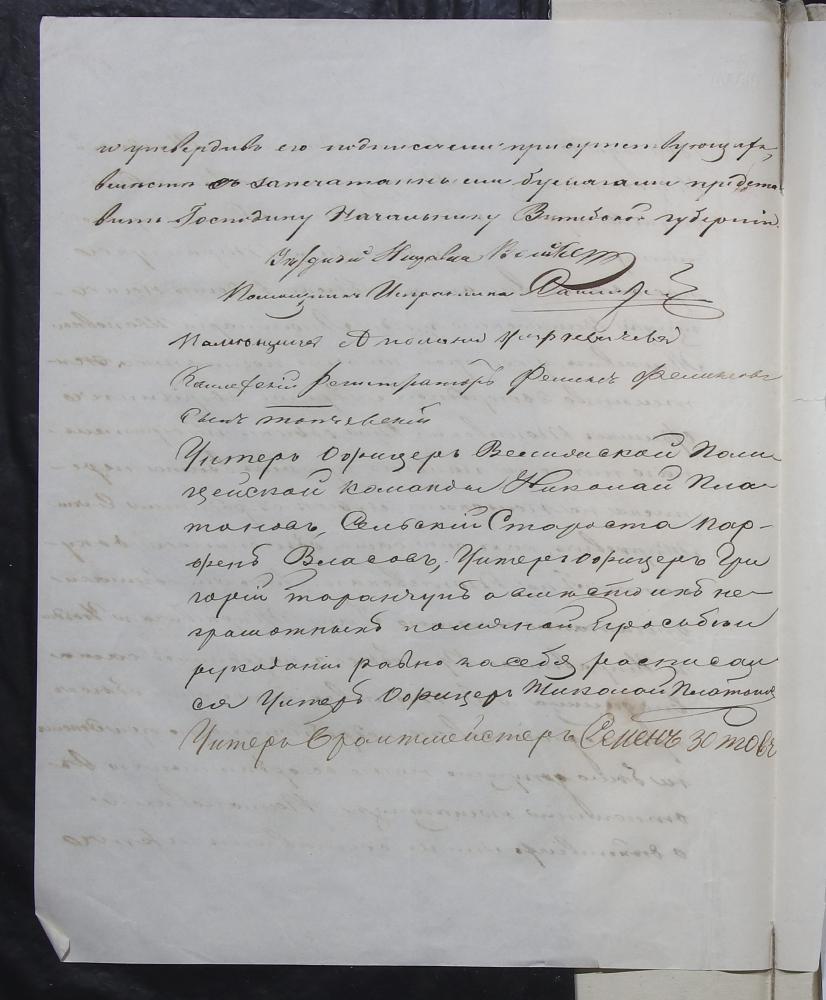 и утвердивъ его подписомъ присутствующихъ,
вмѣстѣ съ запечатанными бумагами предста-
вить Господину Начальнику Витебской губерніи.
Помощникъ Исправника
Помѣщица
Коллежскій Регистраторъ Феликсъ Феликсовъ
сынъ
Унтеръ Офицеръ Велижской Поли-
цейской команды Николай Пла-
тоновъ, Сельскій Староста Пар-
фенъ Власовъ, Унтеръ Офицеръ Гри
горій а вмѣсто ихъ не-
грамотныхъ по личной просьбѣ и
рукоданію равно за себя росписал
ся Унтеръ Офицеръ Николай Платоновъ
Унтеръ Брантмейстеръ Семенъ Зотовъ